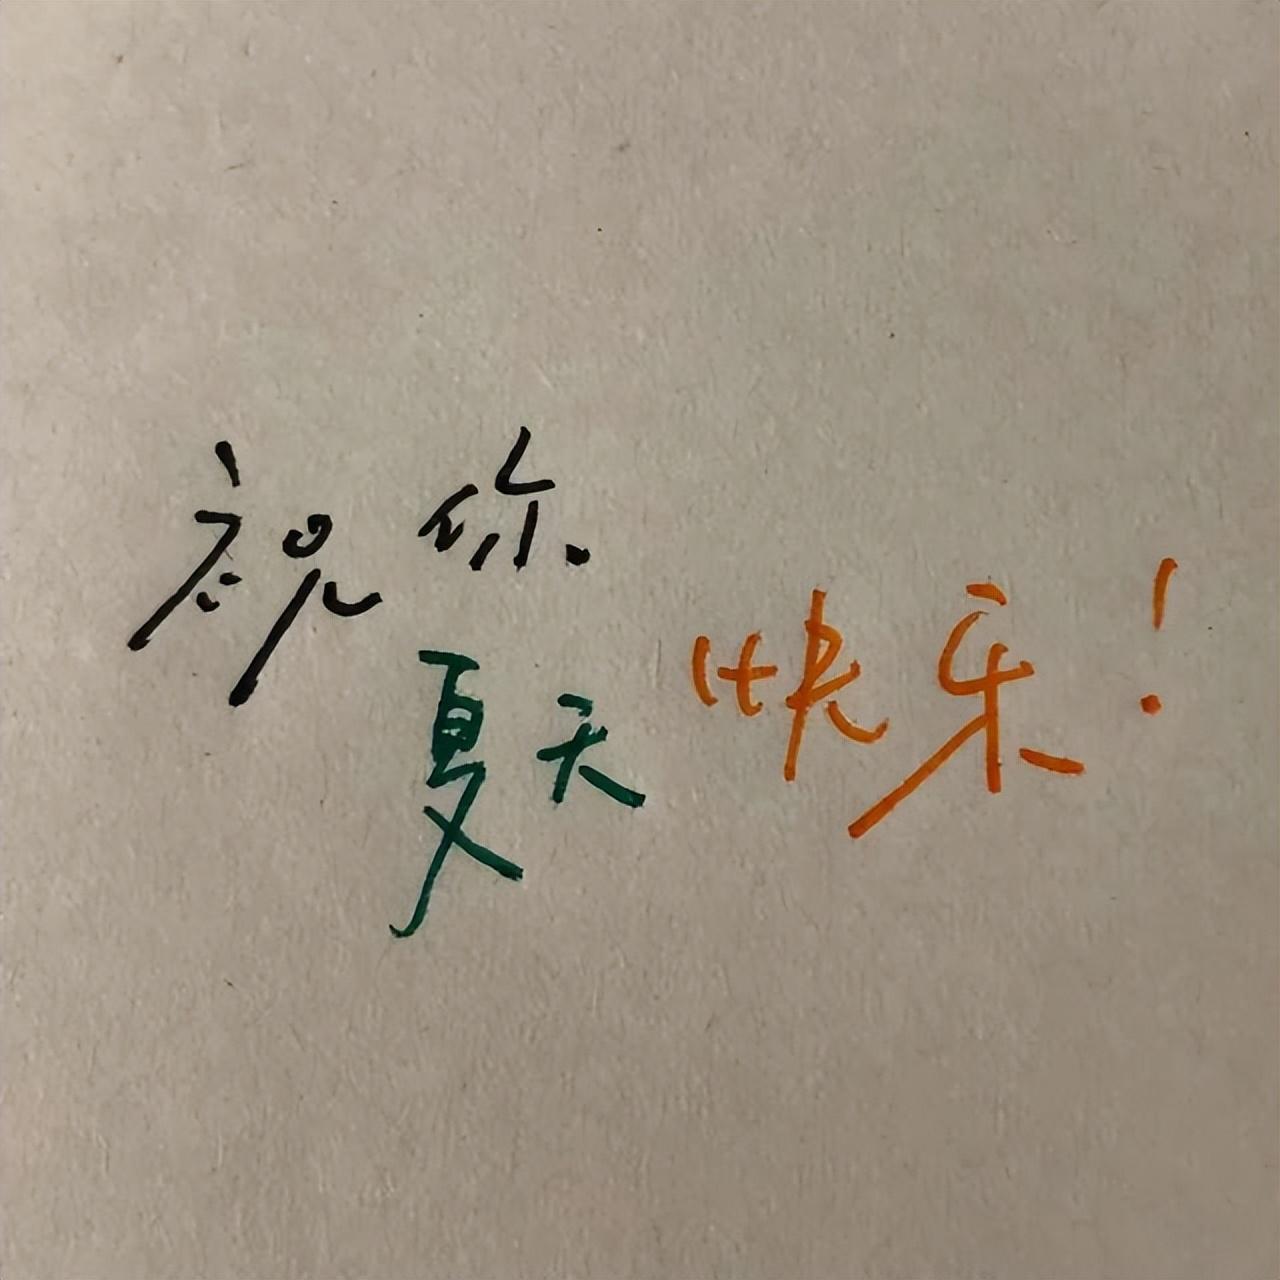 祝你
夏天快乐！